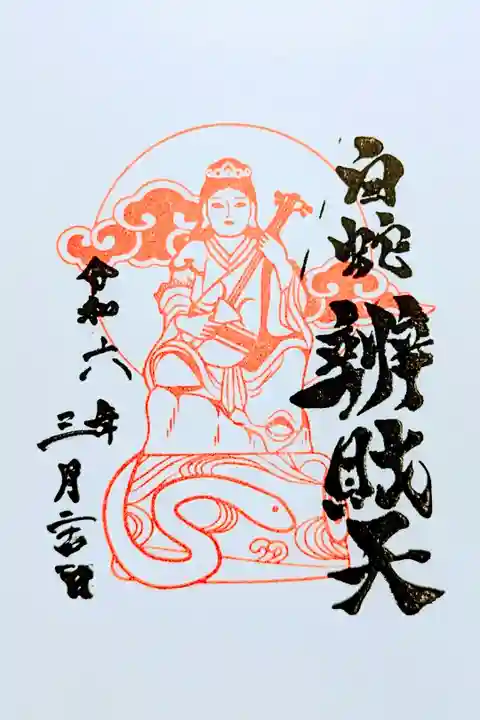 白蛇辨財天
令和六年
三月吉日